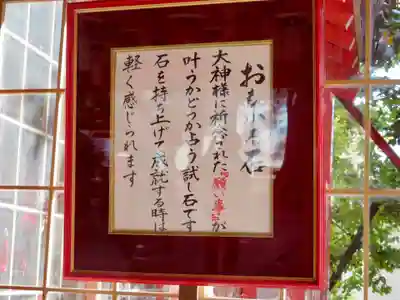 おもかる石
大神様に祈念された『願い事』が
叶うかどうか占う試し石です
石を持ち上げて成就する時は
軽く感じられます